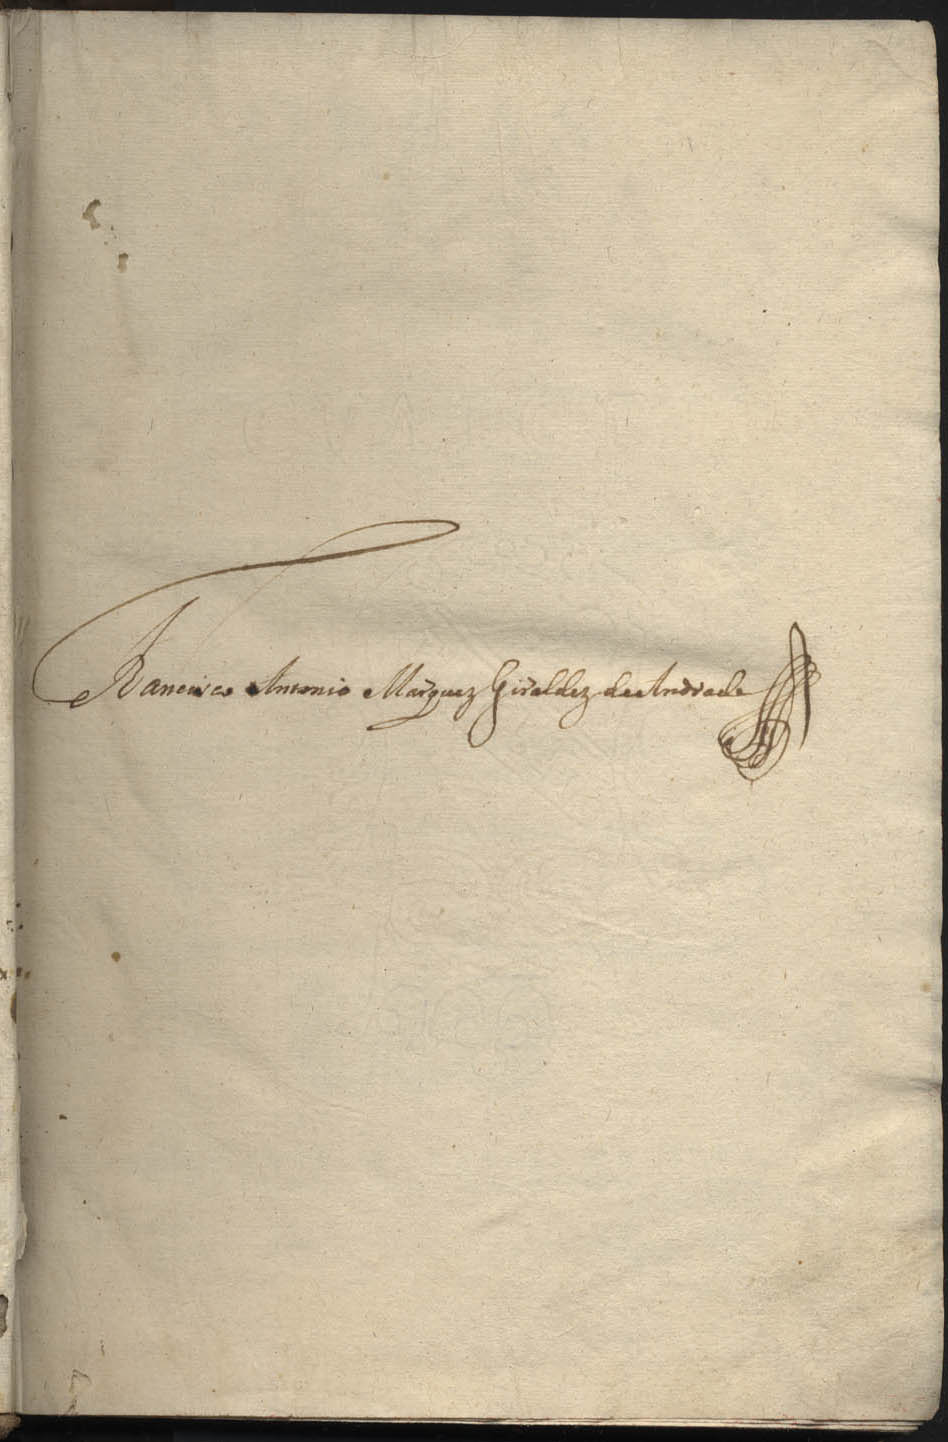 Francisco Antonio Marquez Giraldez de Andrade